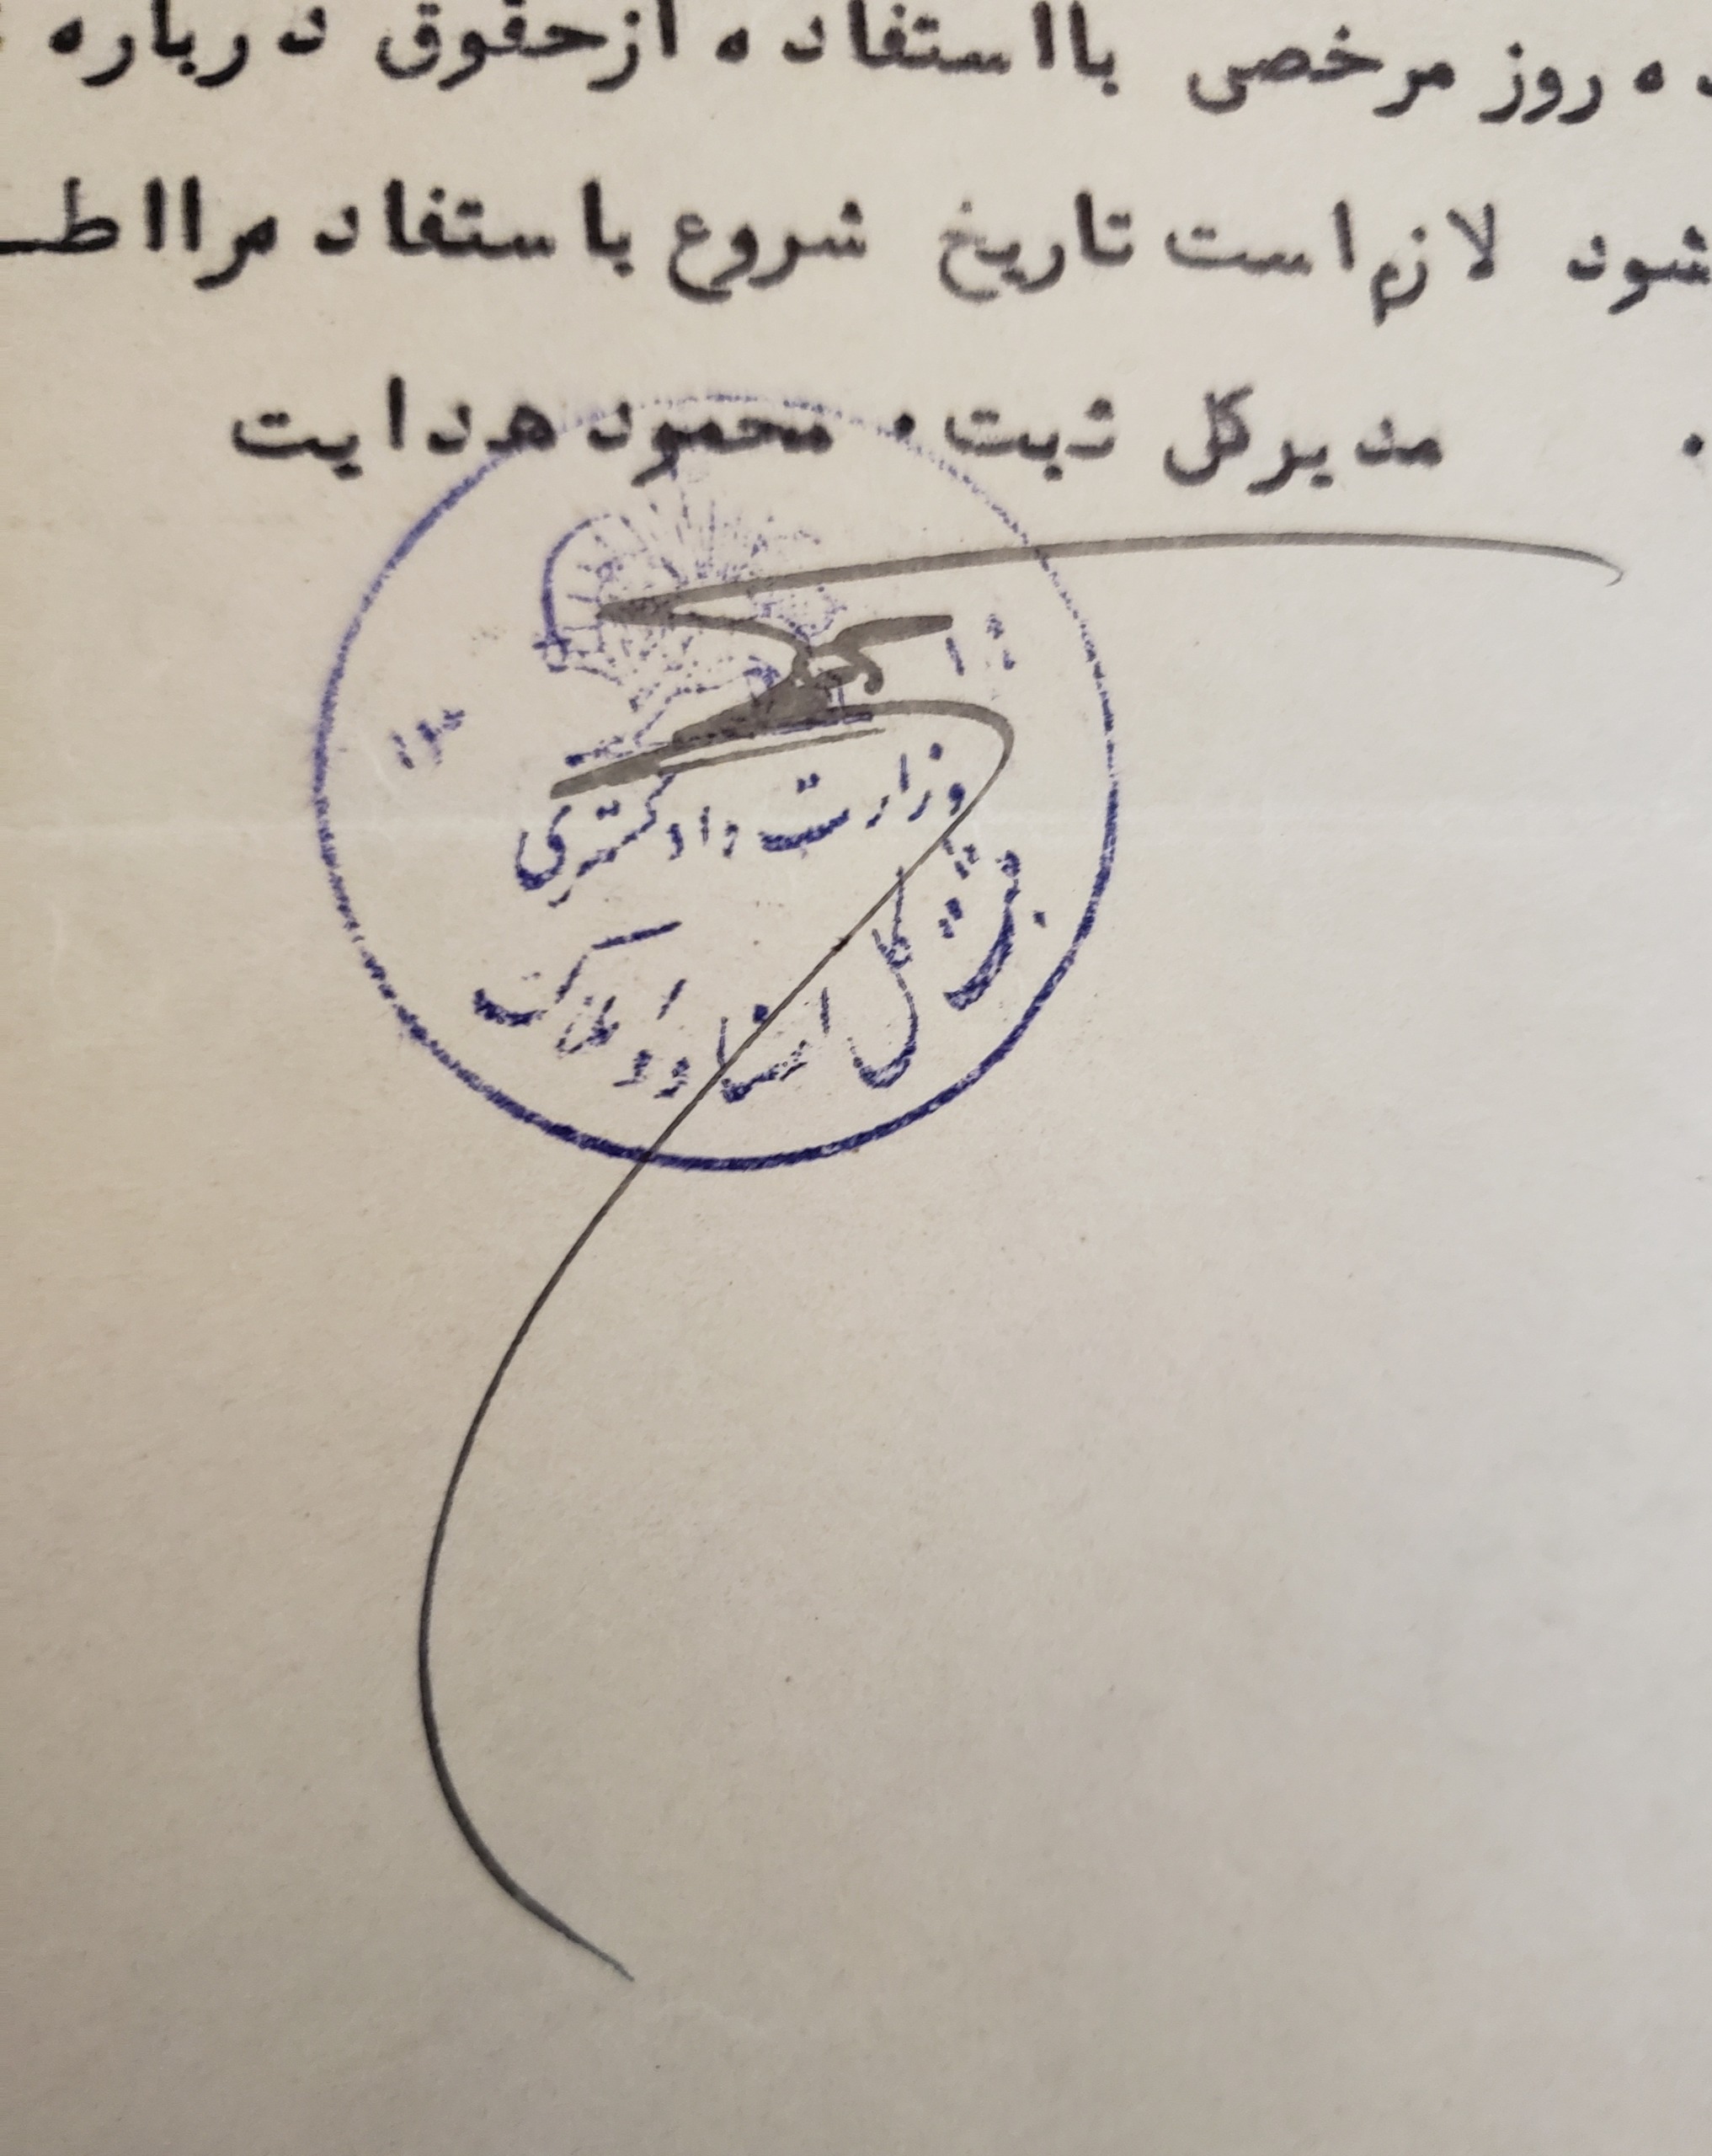 ه روز مرخصی بااستفاده ازحقوق درباره
شود لازم است تاریخ شروع باستفاد مرااطـ
. مدیرکل ثبت . محمود هدایت
وزارت دادگستری
ثبت کل اسناد و املاک